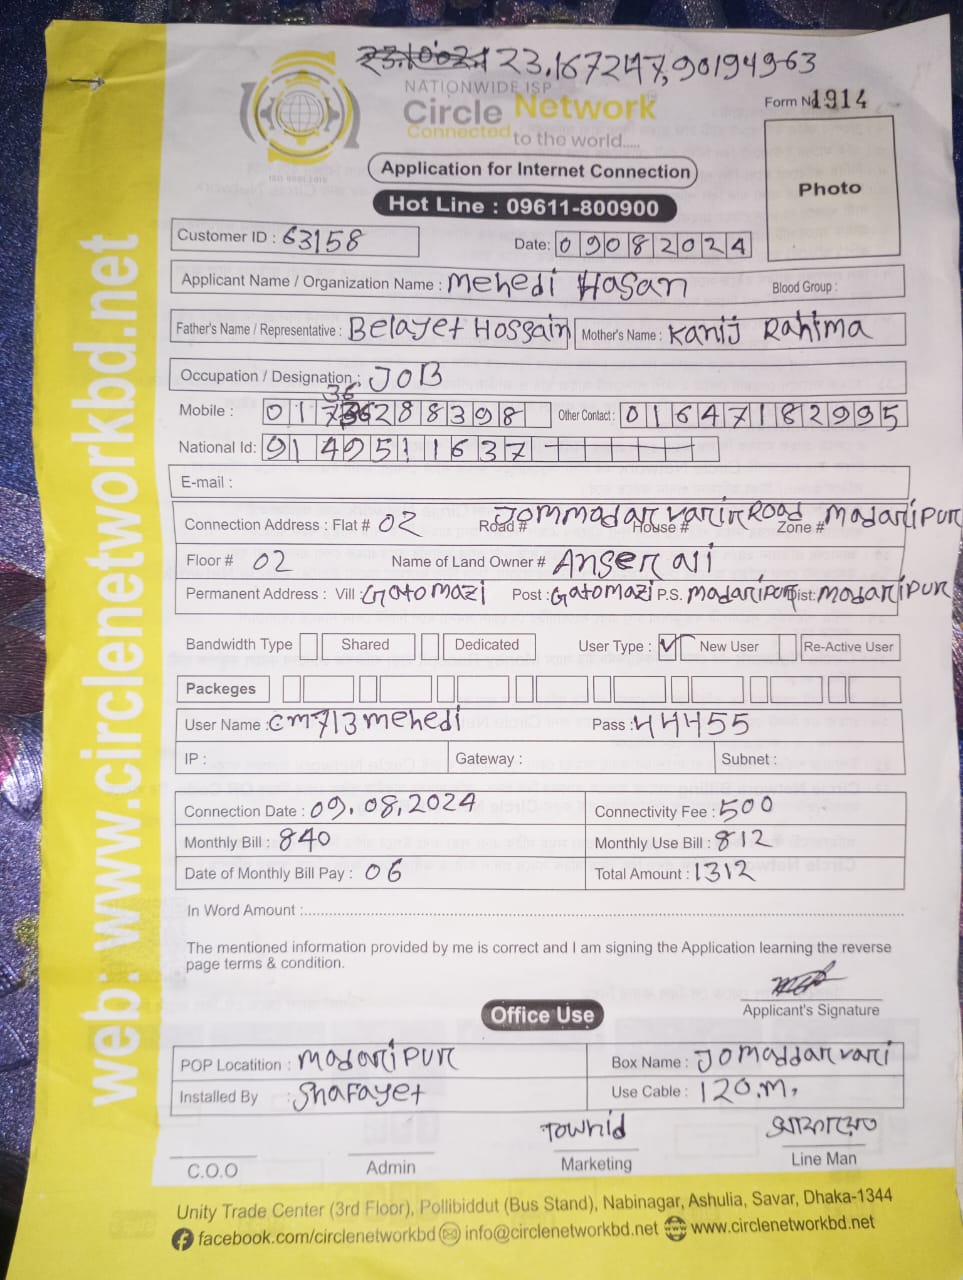 23.167247,90194963
NATIONWIDE ISP
Circle Network
Connected to the world.....
ISO 9001:2015
Form No 1914
Application for Internet Connection
Photo
Hot Line : 09611-800900
Customer ID : 63158
Date: 09082024
Applicant Name / Organization Name : Mehedi Hasan Blood Group :
Father's Name / Representative : Belayet Hossain Mother's Name : Kanij Rahima
Occupation / Designation : JOB
36
Mobile : 017 36288398 Other Contact : 01647182995
National Id: 91 4951 1637
E-mail :
Connection Address : Flat # 02 Road # Jommadar varir Road House # Zone # Madaripur
Floor # 02 Name of Land Owner # Anser ali
Permanent Address : Vill : Gatomazi Post : Gatomazi P.S. Madaripur Dist: Madaripur
Bandwidth Type Shared Dedicated User Type : ✓ New User Re-Active User
Packeges
User Name : cm713mehedi Pass : 44455
IP : Gateway : Subnet :
Connection Date : 09.08.2024 Connectivity Fee : 500
Monthly Bill : 840 Monthly Use Bill : 812
Date of Monthly Bill Pay : 06 Total Amount : 1312
In Word Amount :
The mentioned information provided by me is correct and I am signing the Application learning the reverse
page terms & condition.
Applicant's Signature
Office Use
POP Locatition : Madaripur Box Name : Jomaddar vari
Installed By : Shafayet Use Cable : 120.m.
Townid
C.O.O Admin Marketing Line Man
Unity Trade Center (3rd Floor), Pollibiddut (Bus Stand), Nabinagar, Ashulia, Savar, Dhaka-1344
facebook.com/circlenetworkbd info@circlenetworkbd.net www.circlenetworkbd.net
web: www.circlenetworkbd.net